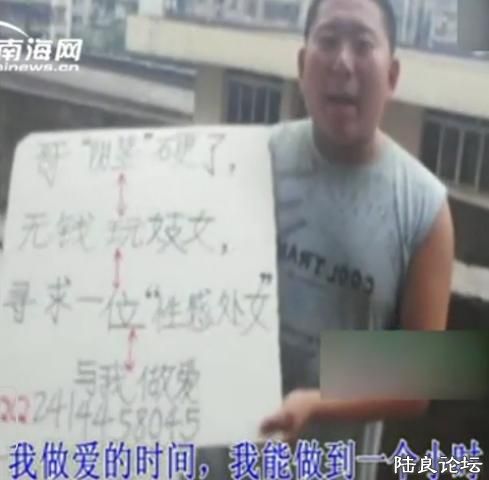 南海网
inews.cn
哥"阴茎"硬了，
无钱玩妓女，
寻求一位"性感处女"
与我做爱
COOLTRA
222414458045
我做爱的时间，我能做到一个小时
陆良论坛